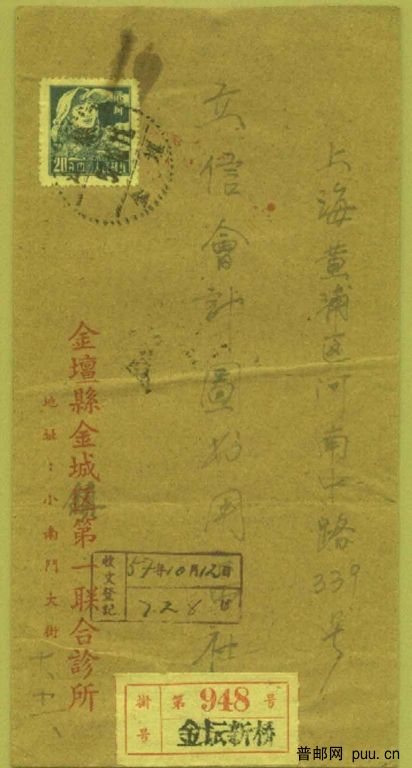 上海黄浦区河南中路339号
立信會計圖书用品社
20
金壇縣金城鎮第一联合診所
地址:小南門大街
收文登記
57年10月12日
掛号
第948号
金坛新桥
普邮网 puu.cn